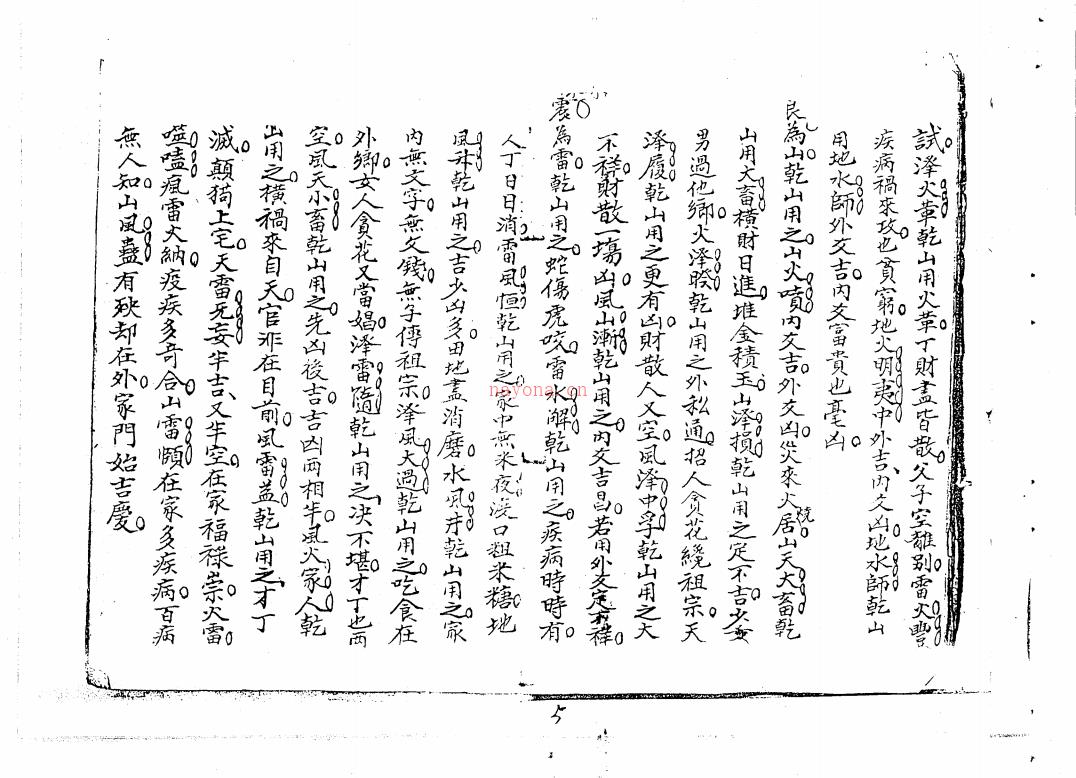 試澤火革乾山用火革丁財盡皆散父子空離別雷火豐
疾病禍來攻也貧窮地火明夷中外吉內爻凶地水師乾山
用地水師外爻吉內爻富貴也毫凶
艮為山乾山用之山火噴內爻吉外爻凶災來火燒居山天大畜乾
山用大畜橫財日進堆金積玉山澤損乾山用之定不吉少女
男過他鄉火澤睽乾山用之外私通招人貪花繞祖宗天
澤履乾山用之更有凶財散人又空風澤中孚乾山用之大
不祥財散一塲凶風山漸乾山用之內爻吉昌若用外爻定不祥
震為雷乾山用之蛇傷虎咬雷水解乾山用之疾病時時有
人丁日日消雷風恒乾山用之家中無米夜没口粗米糖地
風升乾山用之吉少凶多田地盡消磨水風井乾山用之家
內無文字無文錢無子傳祖宗澤風大過乾山用之吃食在
外鄉女人貪花又當娼澤雷隨乾山用之決不堪才丁也両
空風天小畜乾山用之先凶後吉吉凶両相半風火家人乾
山用之橫禍來自天官非在目前風雷益乾山用之才丁
滅顛猗上宅天雷无妄半吉又半空在家福祿崇火雷
噬嗑瘋雷火納疫疾多奇合山雷頤在家多疾病百病
無人知山風蠱有殃却在外家門始吉慶
nayona.cn
5